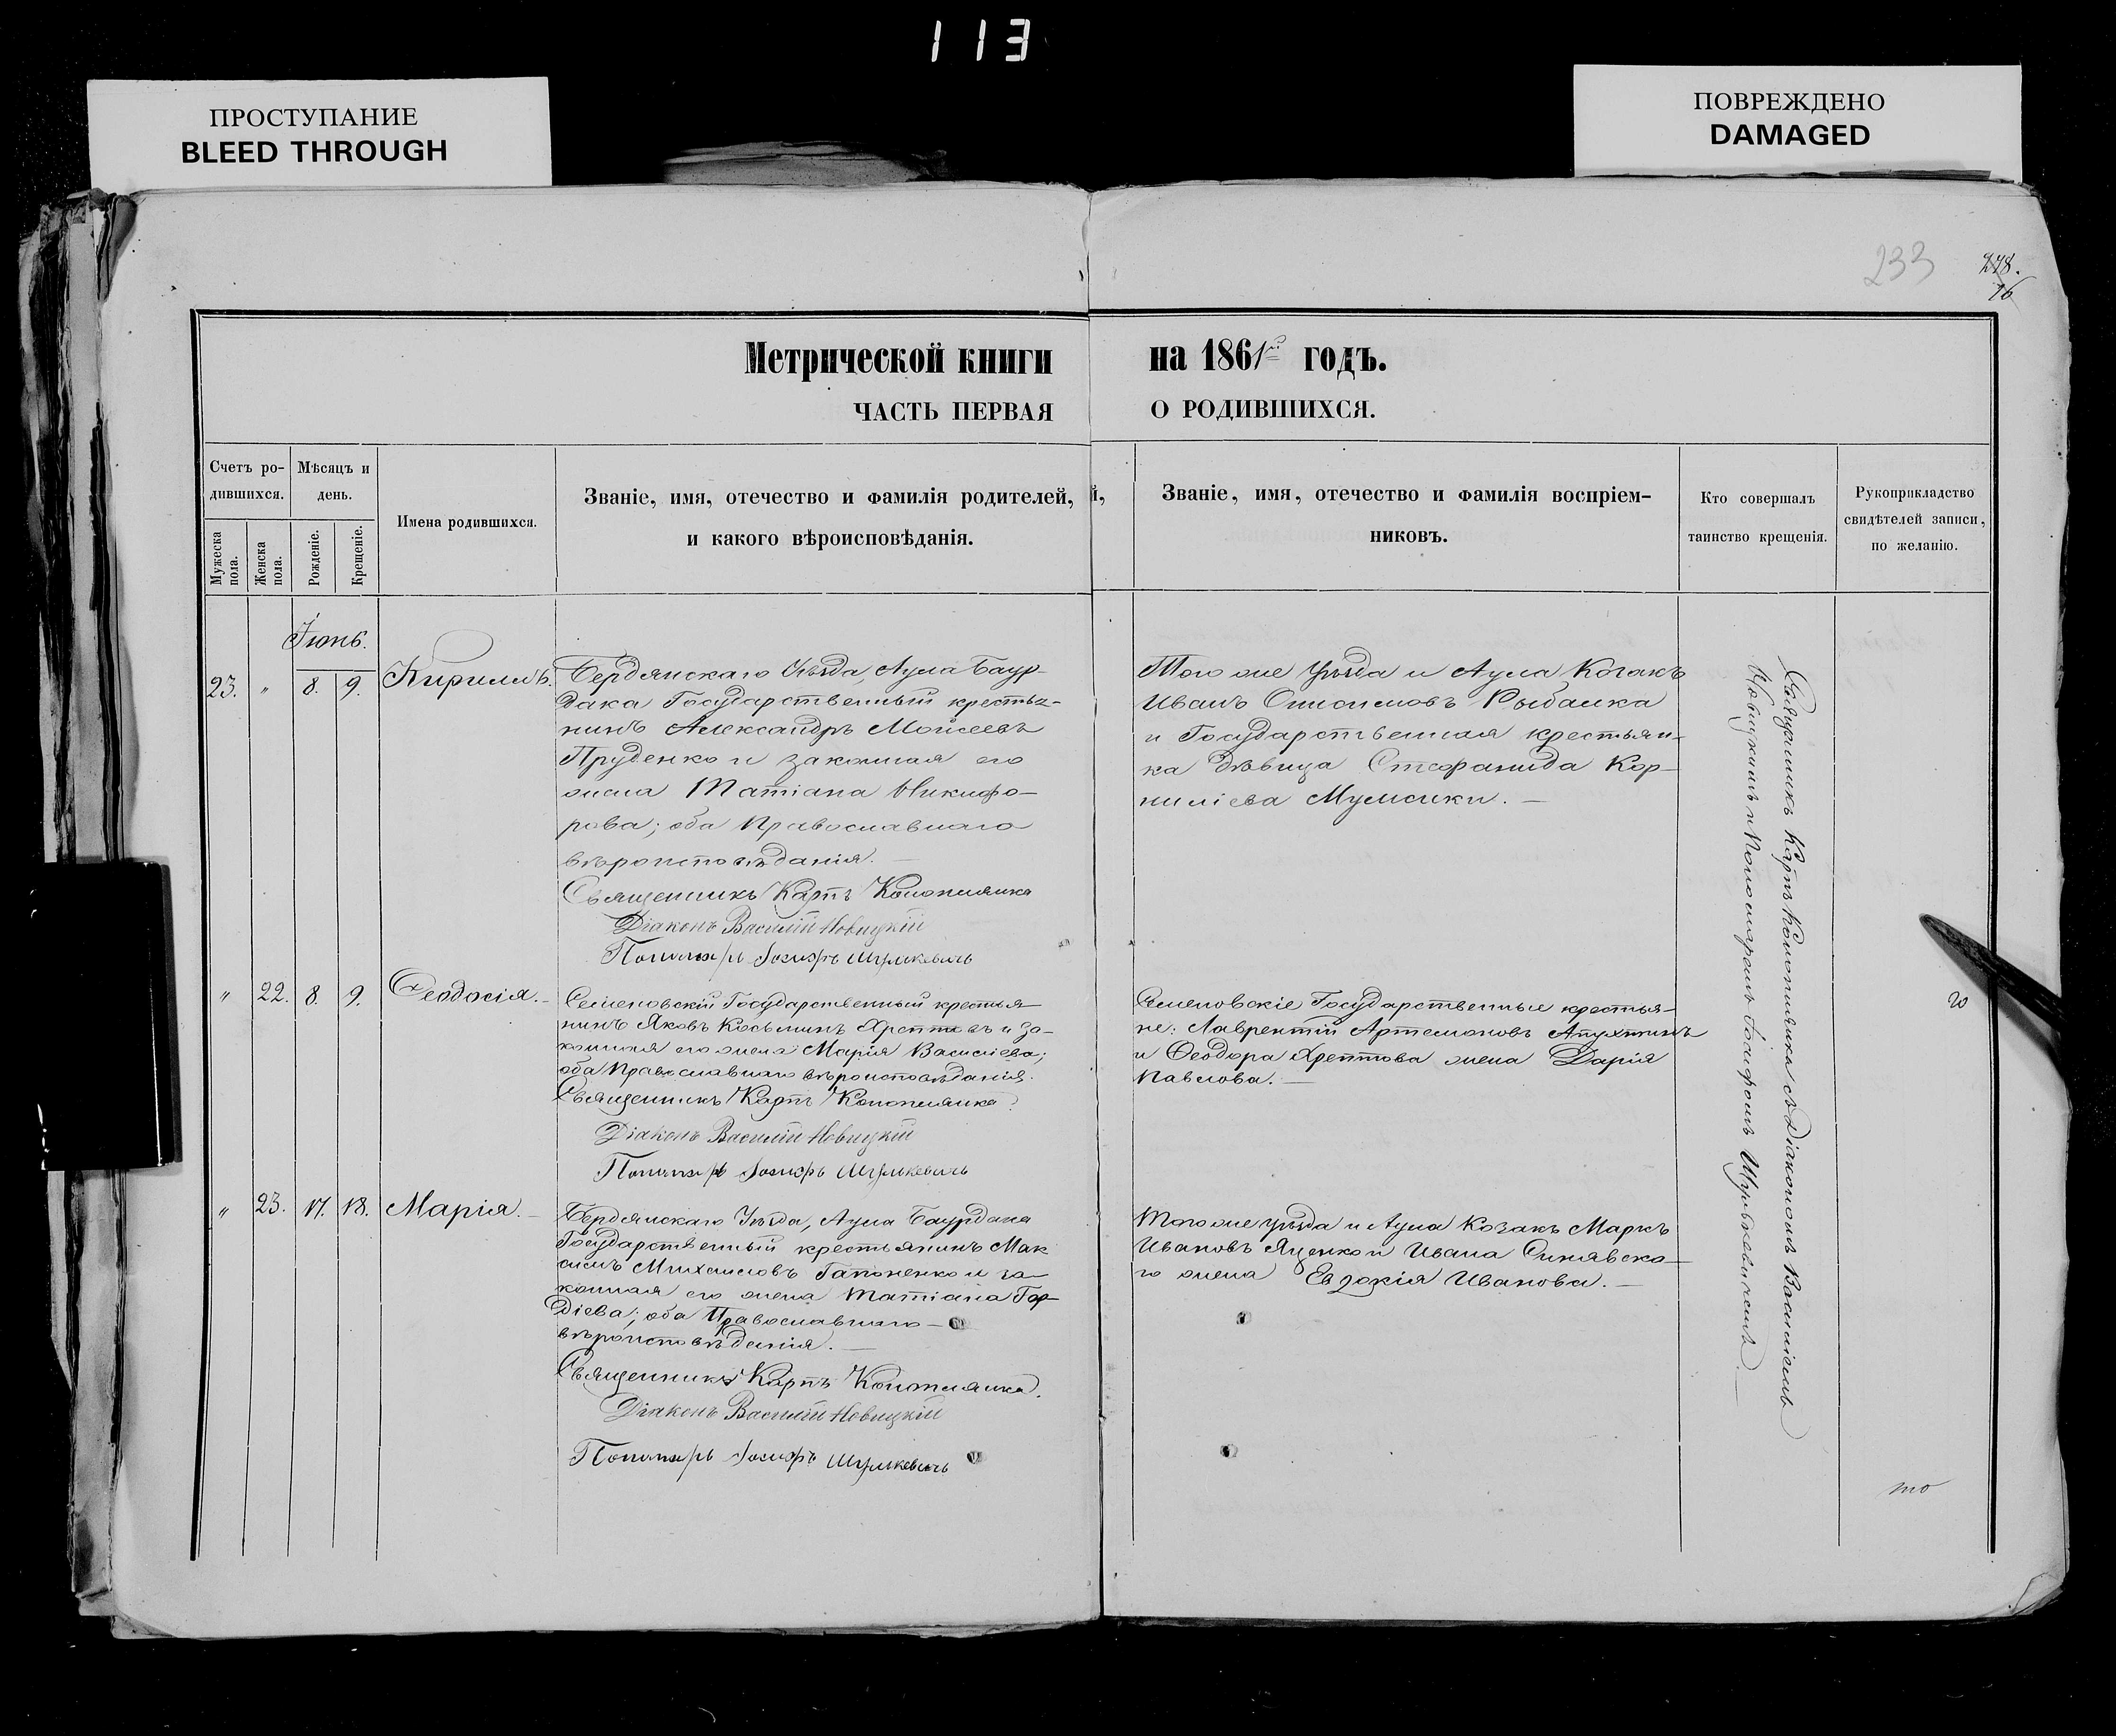 113
ПРОСТУПАНИЕ
BLEED THROUGH
ПОВРЕЖДЕНО
DAMAGED
233
278.
16
Метрической книги на 1861 годъ.
ЧАСТЬ ПЕРВАЯ О РОДИВШИХСЯ.
Счетъ ро-
дившихся.
Мужеска пола.
Женска пола.
Мѣсяцъ и
день.
Рожденіе.
Крещеніе.
Имена родившихся.
Званіе, имя, отечество и фамилія родителей,
и какого вѣроисповѣданія.
й,
Званіе, имя, отечество и фамилія воспріем-
никовъ.
Кто совершалъ
таинство крещенія.
Рукоприкладство
свидѣтелей записи,
по желанію.
Іюнь.
23. " 8. 9. Кириллъ.
Бердянскаго Уѣзда, Аула Баур-
дака Государственный крестья-
нинъ Александръ Моисеевъ
Пруденко и законная его
жена Татіана Никифо-
рова; оба Православнаго
вѣроисповѣданія. —
Священникъ Карпъ Конопляика
Діаконъ Василій Новицкій
Пономарь Іосифъ Шулькевичь
Того же Уѣзда и Аула Козакъ
Иванъ Рыбалка
и Государственная крестьян-
ка дѣвица Стефанида Кор-
нилiева. —
" 22. 8. 9. Ѳеодосія. —
Семеновскій Государственный крестья-
нинъ Яковъ Косьминъ Хрептовъ и за-
конная его жена Марія Василіева;
оба Православнаго вѣроисповѣданія.
Священникъ Карпъ Конопляика
Діаконъ Василій Новицкій
Пономарь Іосифъ Шулькевичь
Семеновскіе Государственные крестья-
не: Лаврентій Артемоновъ Апухтинъ
и Ѳеодора Хрептова жена Дарія
Павлова. —
го
" 23. 17. 18. Марія. —
Бердянскаго Уѣзда, Аула Баурдака
Государственный крестьянинъ Мак
симъ Михаиловъ Гапоненко и за-
конная его жена Татіана Гор-
діева; оба Православнаго —
вѣроисповѣданія. —
Священникъ Карпъ Конопляика.
Діаконъ Василій Новицкій
Пономарь Іосифъ Шулькевичь
Того же уѣзда и Аула Козакъ Маркъ
Ивановъ Яценко и Ивана Синявска-
го жена Евдокія Иванова. —
Священникъ Карпъ Конопляика съ Діакономъ Василіемъ
Новицкимъ и Пономаремъ Іосифомъ Шулькевичемъ. —
то